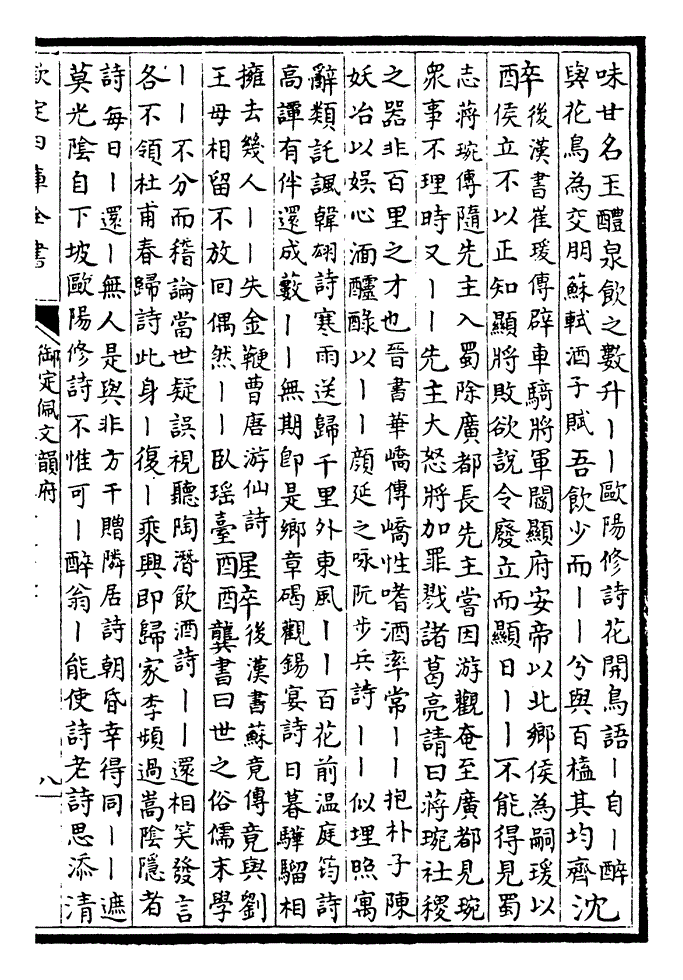 味甘名玉醴泉飲之數升丨丨歐陽修詩花開鳥語丨自丨醉
與花鳥為交朋蘇軾酒子賦吾飲少而丨丨兮與百榼其均齊
沈
醉
後漢書崔瑗傳辟車騎將軍閻顯府安帝以北鄉侯為嗣瑗以
侯立不以正知顯將敗欲說令廢立而顯日丨丨不能得見蜀
志蔣琬傳隨先主入蜀除廣都長先主嘗因游觀奄至廣都見琬
眾事不理時又丨丨先主大怒將加罪戮諸葛亮請曰蔣琬社稷
之器非百里之才也晉書華嶠傳嶠性嗜酒率常丨丨抱朴子陳
妖冶以娛心湎醽醁以丨丨顔延之咏阮步兵詩丨丨似埋照寓
辭類託諷韓翃詩寒雨送歸千里外東風丨丨百花前温庭筠詩
高譚有伴還成藪丨丨無期即是鄉章碣觀錫宴詩日暮驊騮相
擁去幾人丨丨失金鞭曹唐游仙詩
王母相留不放回偶然丨丨卧瑶臺
酲醉
後漢書蘇竟傳竟與劉
龔書曰世之俗儒末學
丨丨不分而稽論當世疑誤視聽陶潛飲酒詩丨丨還相笑發言
各不領杜甫春歸詩此身丨復丨乘興即歸家李頻過嵩陰隱者
詩每日丨還丨無人是與非方干贈隣居詩朝昏幸得同丨丨遮
莫光陰自下坡歐陽修詩不惟可丨醉翁丨能使詩老詩思添
清
欽定四庫全書
御定佩文韻府
八